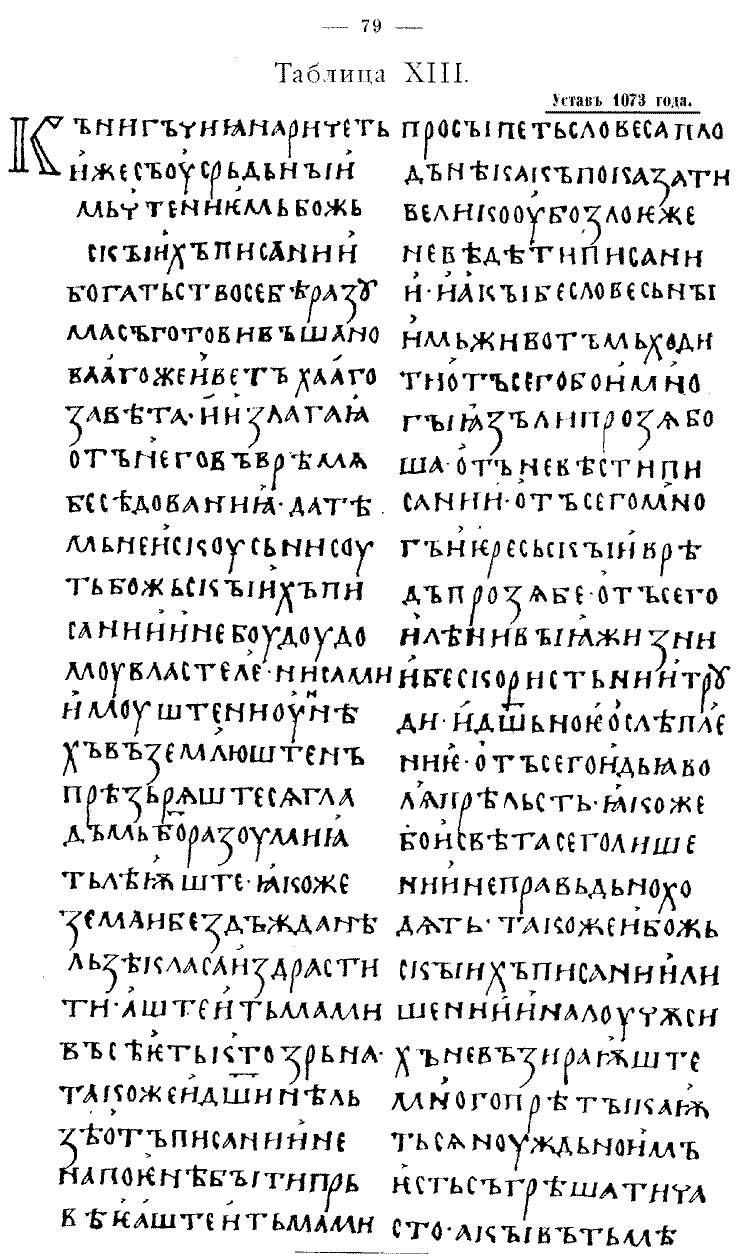 — 79 —
Таблица XIII.
Уставъ 1073 года.
КЪНИГЪЧИꙖНАРИЧЕТЬ
ИЖЕСЪОУСРЬДЬНЫИ
МЬЧТЕНИѤМЬБОЖЬ
СКЫИХЪПИСАНИИ
БОГАТЬСТВОСЕБѢРАЗꙊ
МАСЪГОТОВИВЪШАНО
ВААГОЖЕИВЕТЪХААГО
ЗАВѢТА·ИИЗЛАГАꙖ
ОТЪНЕГОВЪВРѢМѦ
БЕСѢДОВАНИꙖ·ДАТѢ
МЬНЕИСКОУСЬНИСОУ
ТЬБОЖЬСКЫИХЪПИ
САНИИИНЕБОУДОУДО
МОУВЛАСТЕЛЕ·НИСАМИ
ИМОУШТЕНИОУИНѢ
ХЪВЪЗЕМЛЮШТЕНЪ
ПРѢЗЬРѦШТЕСѦГЛА
ДЪМЬБО҃РАЗОУМНІꙖ
ТЬЛѢѬШТЕ·ꙖКОЖЕ
ЗЕМАИБЕЗДЪЖДАНѢ
ЛЬЗѢКЛАСАИЗДРАСТИ
ТИ·АШТЕИТЬМАМИ
ВЪСѢѤТЬКТОЗРЬНА·
ТАКОЖЕИДШ҃ИНѢЛЬ
ЗѢОТЪПИСАНИИНЕ
НАПОѤНѢБЫТИПРЬ
ВѢѤАШТЕИТЬМАМИ
ПРОСЫПЕТЬСЛОВЕСАПЛО
ДЪНѢКАКЪПОКАЗАТИ
ВЕЛИКООУБОЗЛОѤЖЕ
НЕВѢДѢТИПИСАНИ
И·ИАКЫБЕСЛОВЕСЬНЫ
ИМЬЖИВОТЪМЬХОДИ
ТИОТЪСЕГОБОИМНО
ГЫꙖЗЪЛИПРОЗѦБО
ША·ОТЪНЕВѢСТИПИ
САНИИ·ОТЪСЕГОМНО
ГЪИѤРЕСЬСКЫИВРѢ
ДЪПРОЗѦБЕ·ОТЪСЕГО
ИЛѢНИВЫꙖЖИЗНИ
ИБЕСКОРИСТЬНИИТРꙊ
ДИ·ИДШ҃ЬНОѤОСЛѢПЛЕ
НИѤ·ОТЪСЕГОИДЬꙖВО
ЛѦПРѢЛЬСТЬ·ꙖКОЖЕ
БОИСВѢТАСЕГОЛИШЕ
НИИНЕПРАВЬДЬНОХО
ДѦТЬ·ТАКОЖЕИБОЖЬ
СКЫИХЪПИСАНИИЛИ
ШЕНИИИНАЛОУЧѪСИ
ХЪНЕВЪЗИРАѬШТЕ
МНОГОПРѢТЪІКАѬ
ТЬСѦНОУЖДЬНОИМЪ
ѤСТЬСЪГРѢШАТИЧА
СТО·АКЫВЪТЬМѢ